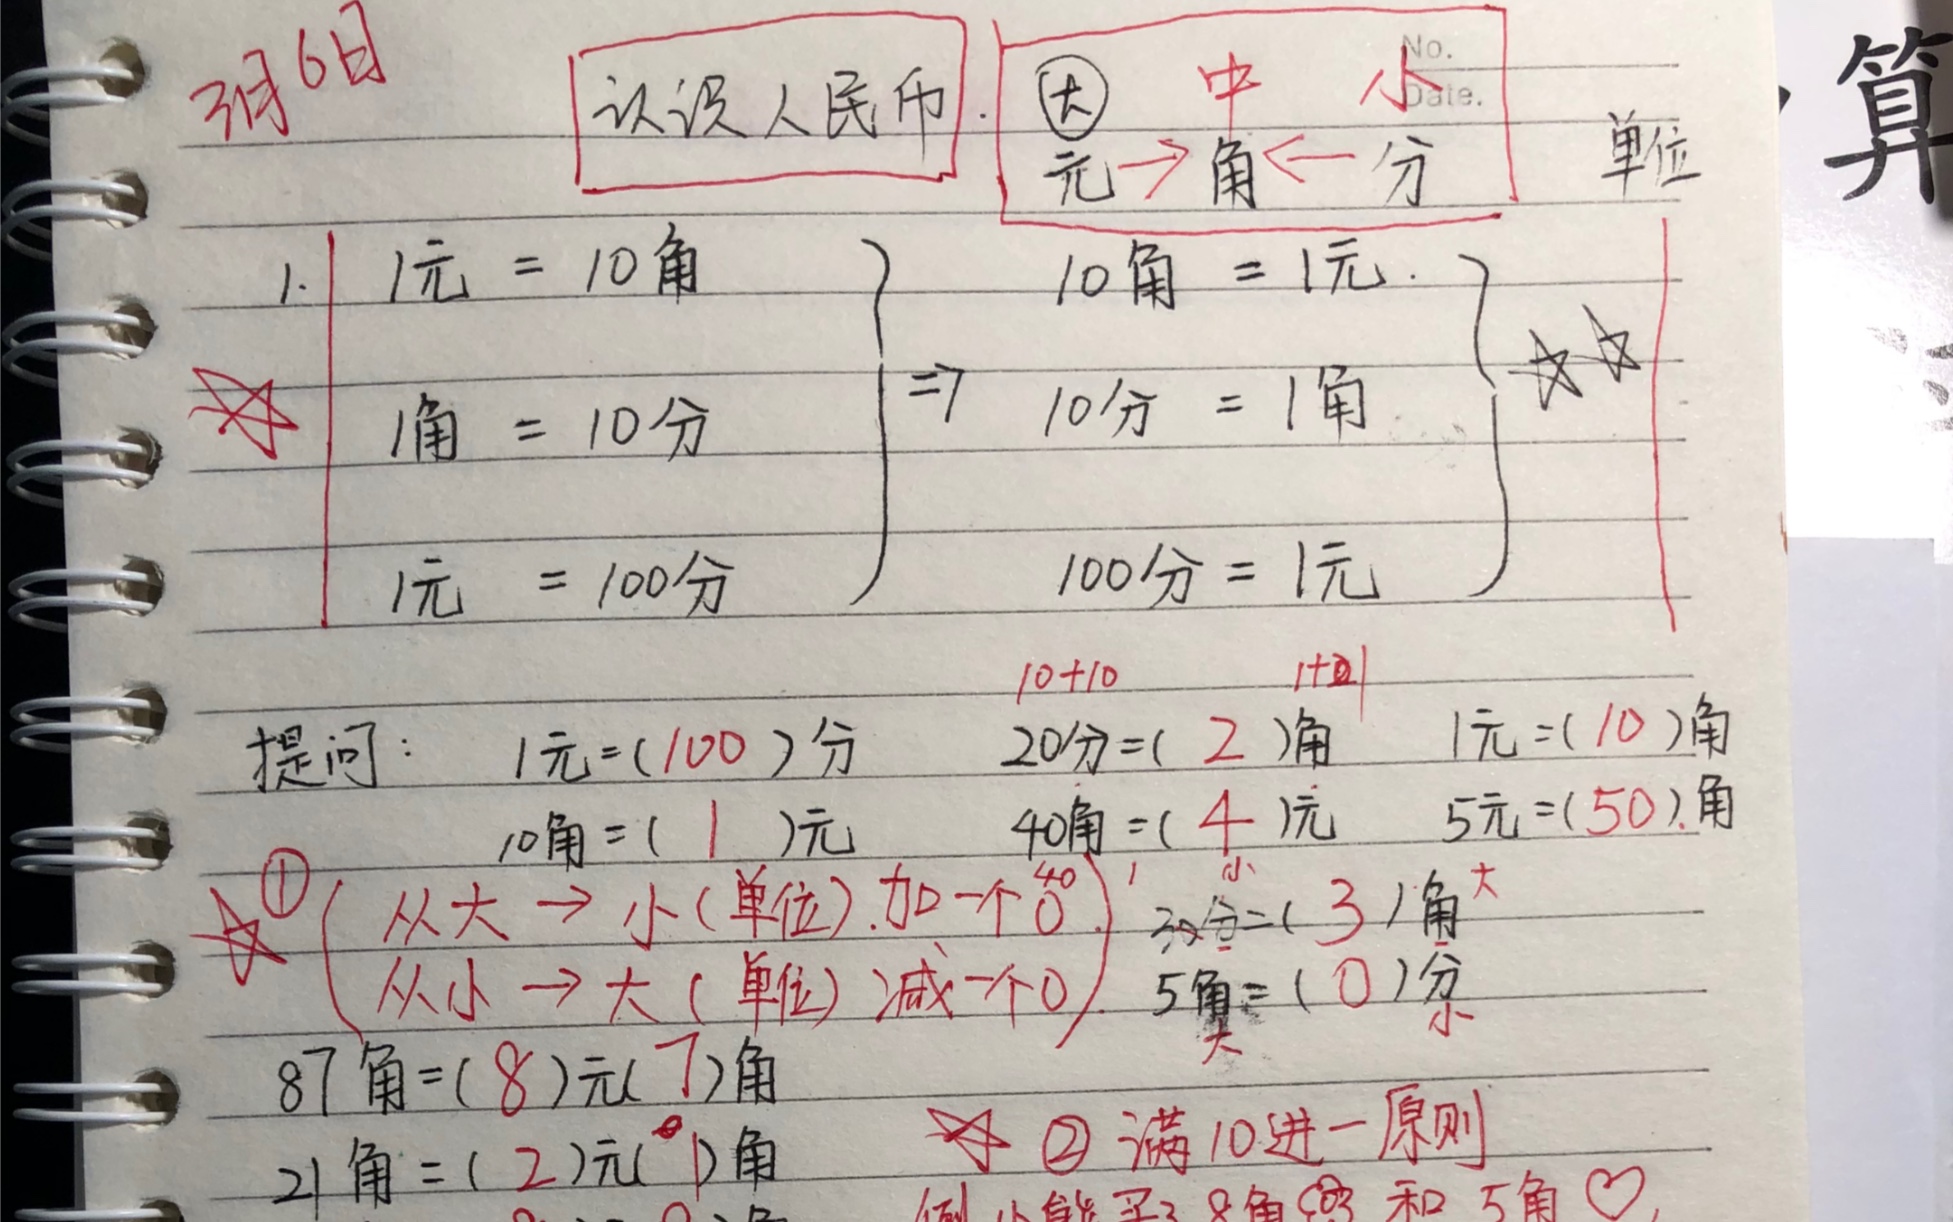 3月6日 认识人民币. 大 中 小
No.
Date.
元→角←分 单位
算
1. 1元 = 10角 10角 = 1元.
1角 = 10分 ⇒ 10分 = 1角
1元 = 100分 100分 = 1元
10+10 1+1
提问: 1元=(100)分 20分=(2)角 1元=(10)角
10角=(1)元 40角=(4)元 5元=(50).角
40 小
① 从大→小(单位).加一个0 30分=(3)角 大
从小→大(单位)减一个0. 5角=(0)分
大 小
87角=(8)元(7)角
② 满10进一原则
21角=(2)元(1)角
例 小熊买了8角 和 5角♡,